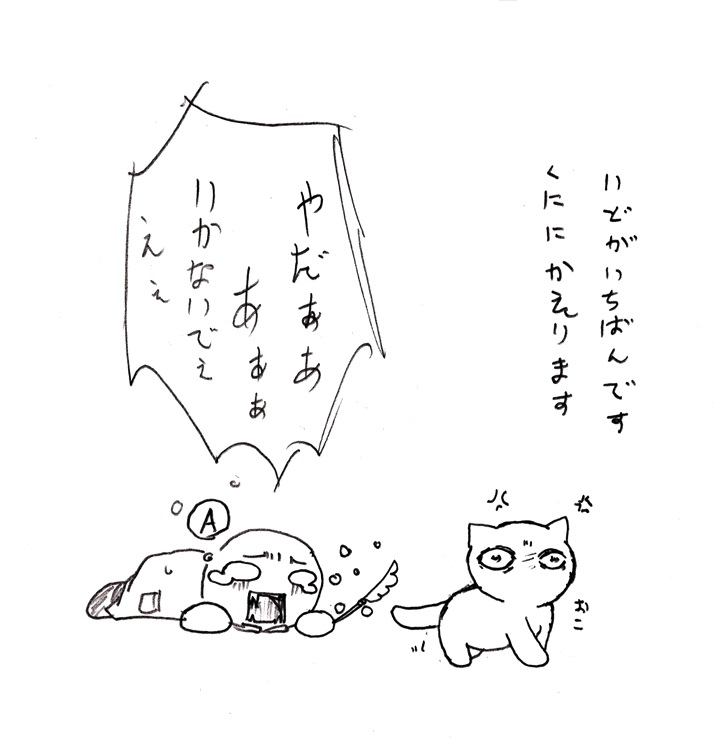 いどがいちばんです
くににかえります
やだぁあ
あぁぁ
いかないでぇ
ぇぇ
A
おこ